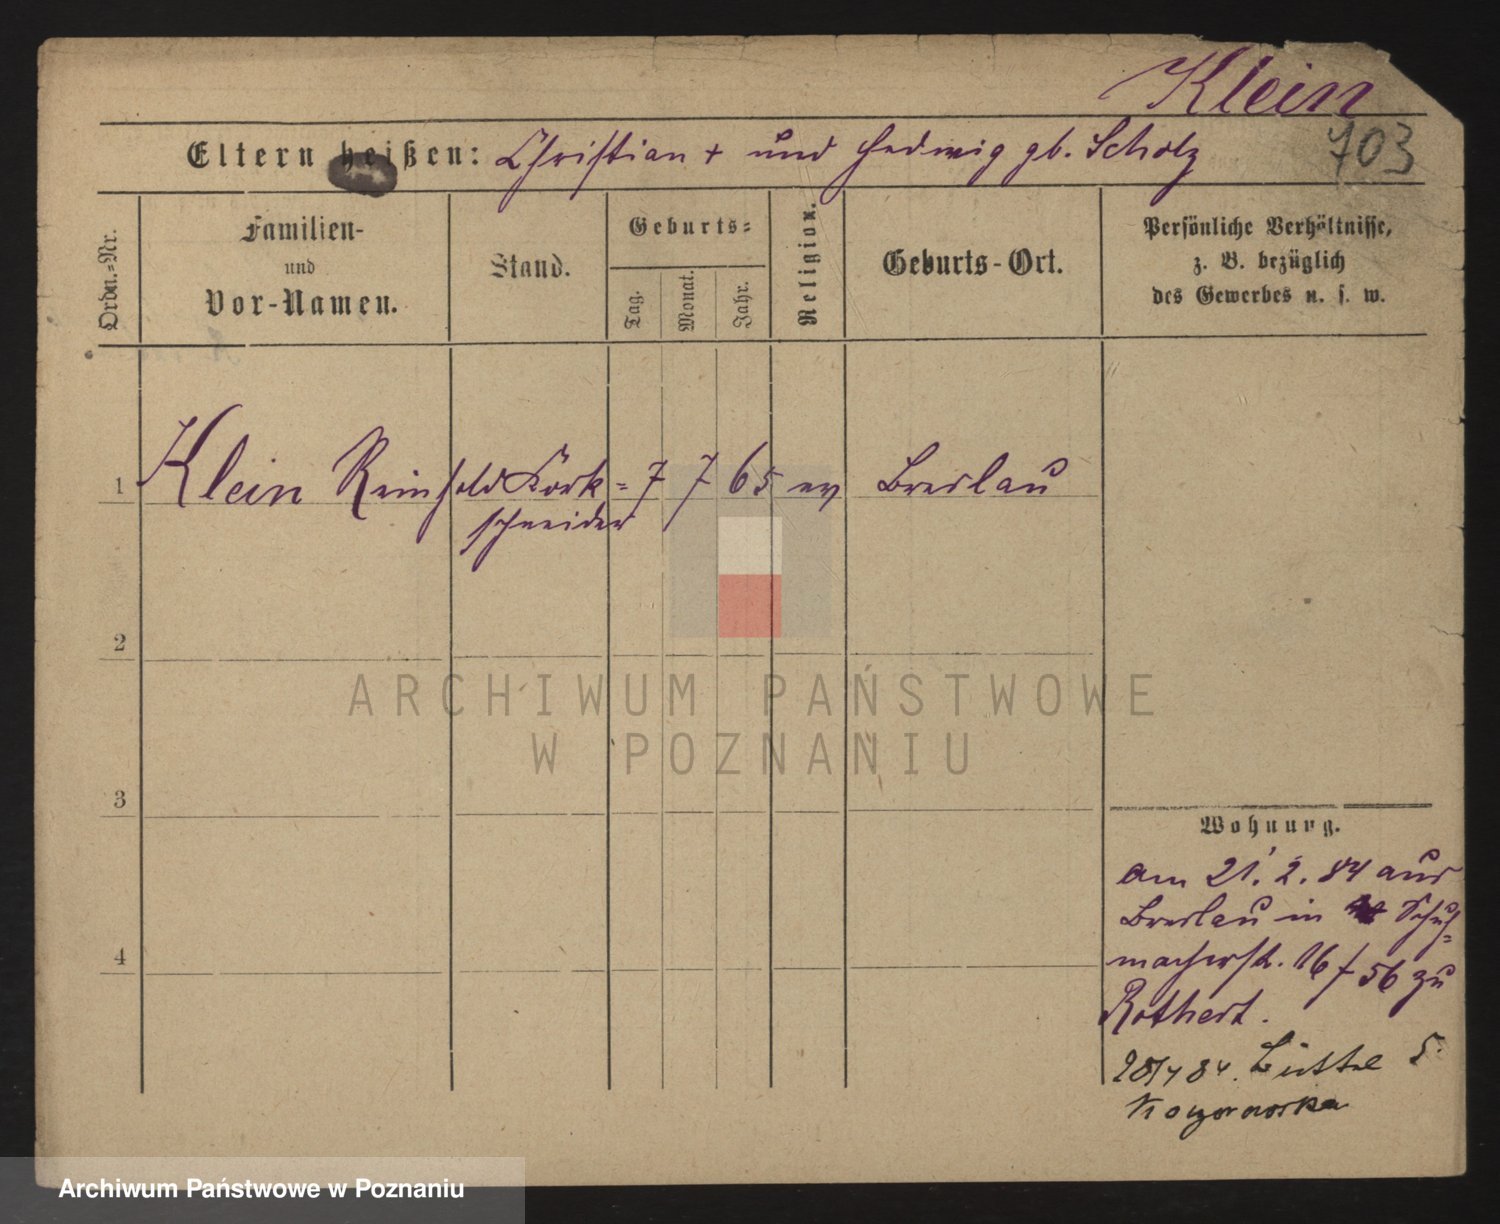 Klein
703
Eltern heißen: Christian + und Hedwig gb. Scholz
Ordn.-Nr.
Familien-
und
Vor-Namen.
Stand.
Geburts-
Tag.
Monat.
Jahr.
Religion.
Geburts-Ort.
Persönliche Verhältnisse,
z. B. bezüglich
des Gewerbes u. s. w.
1 Klein Reinhold Kork- 7 7 65 ev Breslau
schneider
2
3
4
Wohnung.
am 21. 2. 84 aus
Breslau in Schuh-
macherstr. 16 / 56 zu
Rothert.
84. Büttel 5.
ARCHIWUM PAŃSTWOWE
W POZNANIU
Archiwum Państwowe w Poznaniu